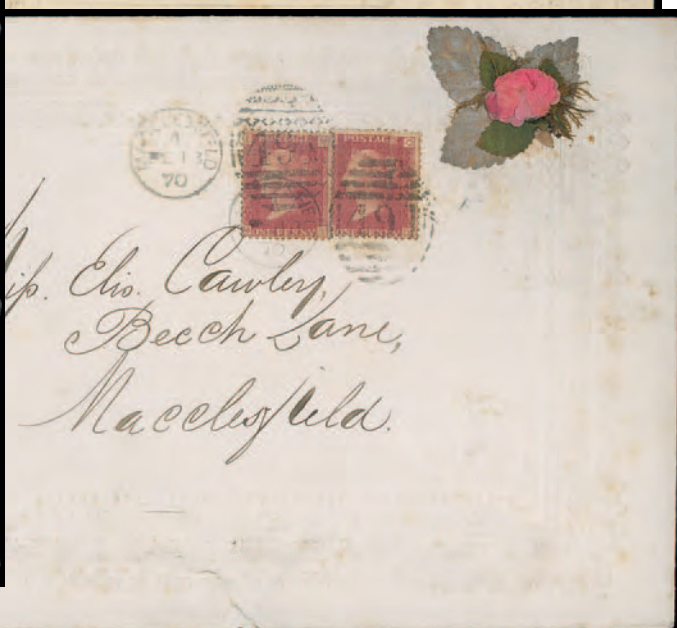 MACCLESFIELD
A
70
POSTAGE
ONE PENNY
POSTAG
C
Miss. Elis. Cawley,
Beech Lane,
Macclesfield.